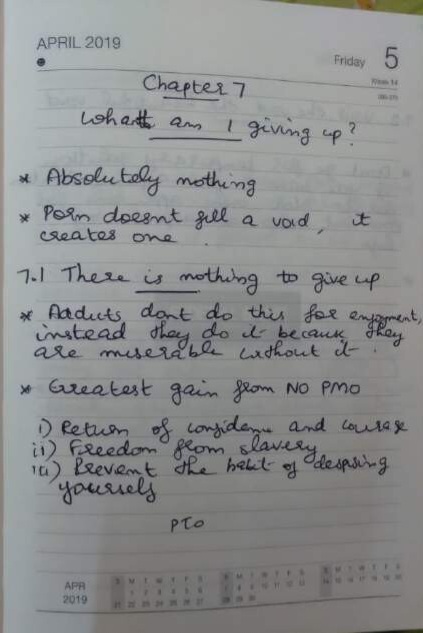 APRIL 2019
Friday 5
Week 14
Chapter 7
What am I giving up?
* Absolutely nothing
* Porn doesnt fill a void, it
creates one.
7.1 There is nothing to give up
* Addicts dont do this for enjoyment,
instead they do it because they
are miserable without it.
* Greatest gain from NO PMO
i) Return of confidence and courage
ii) Freedom from slavery
iii) Prevent the habit of despising
yourself
PTO
APR
2019